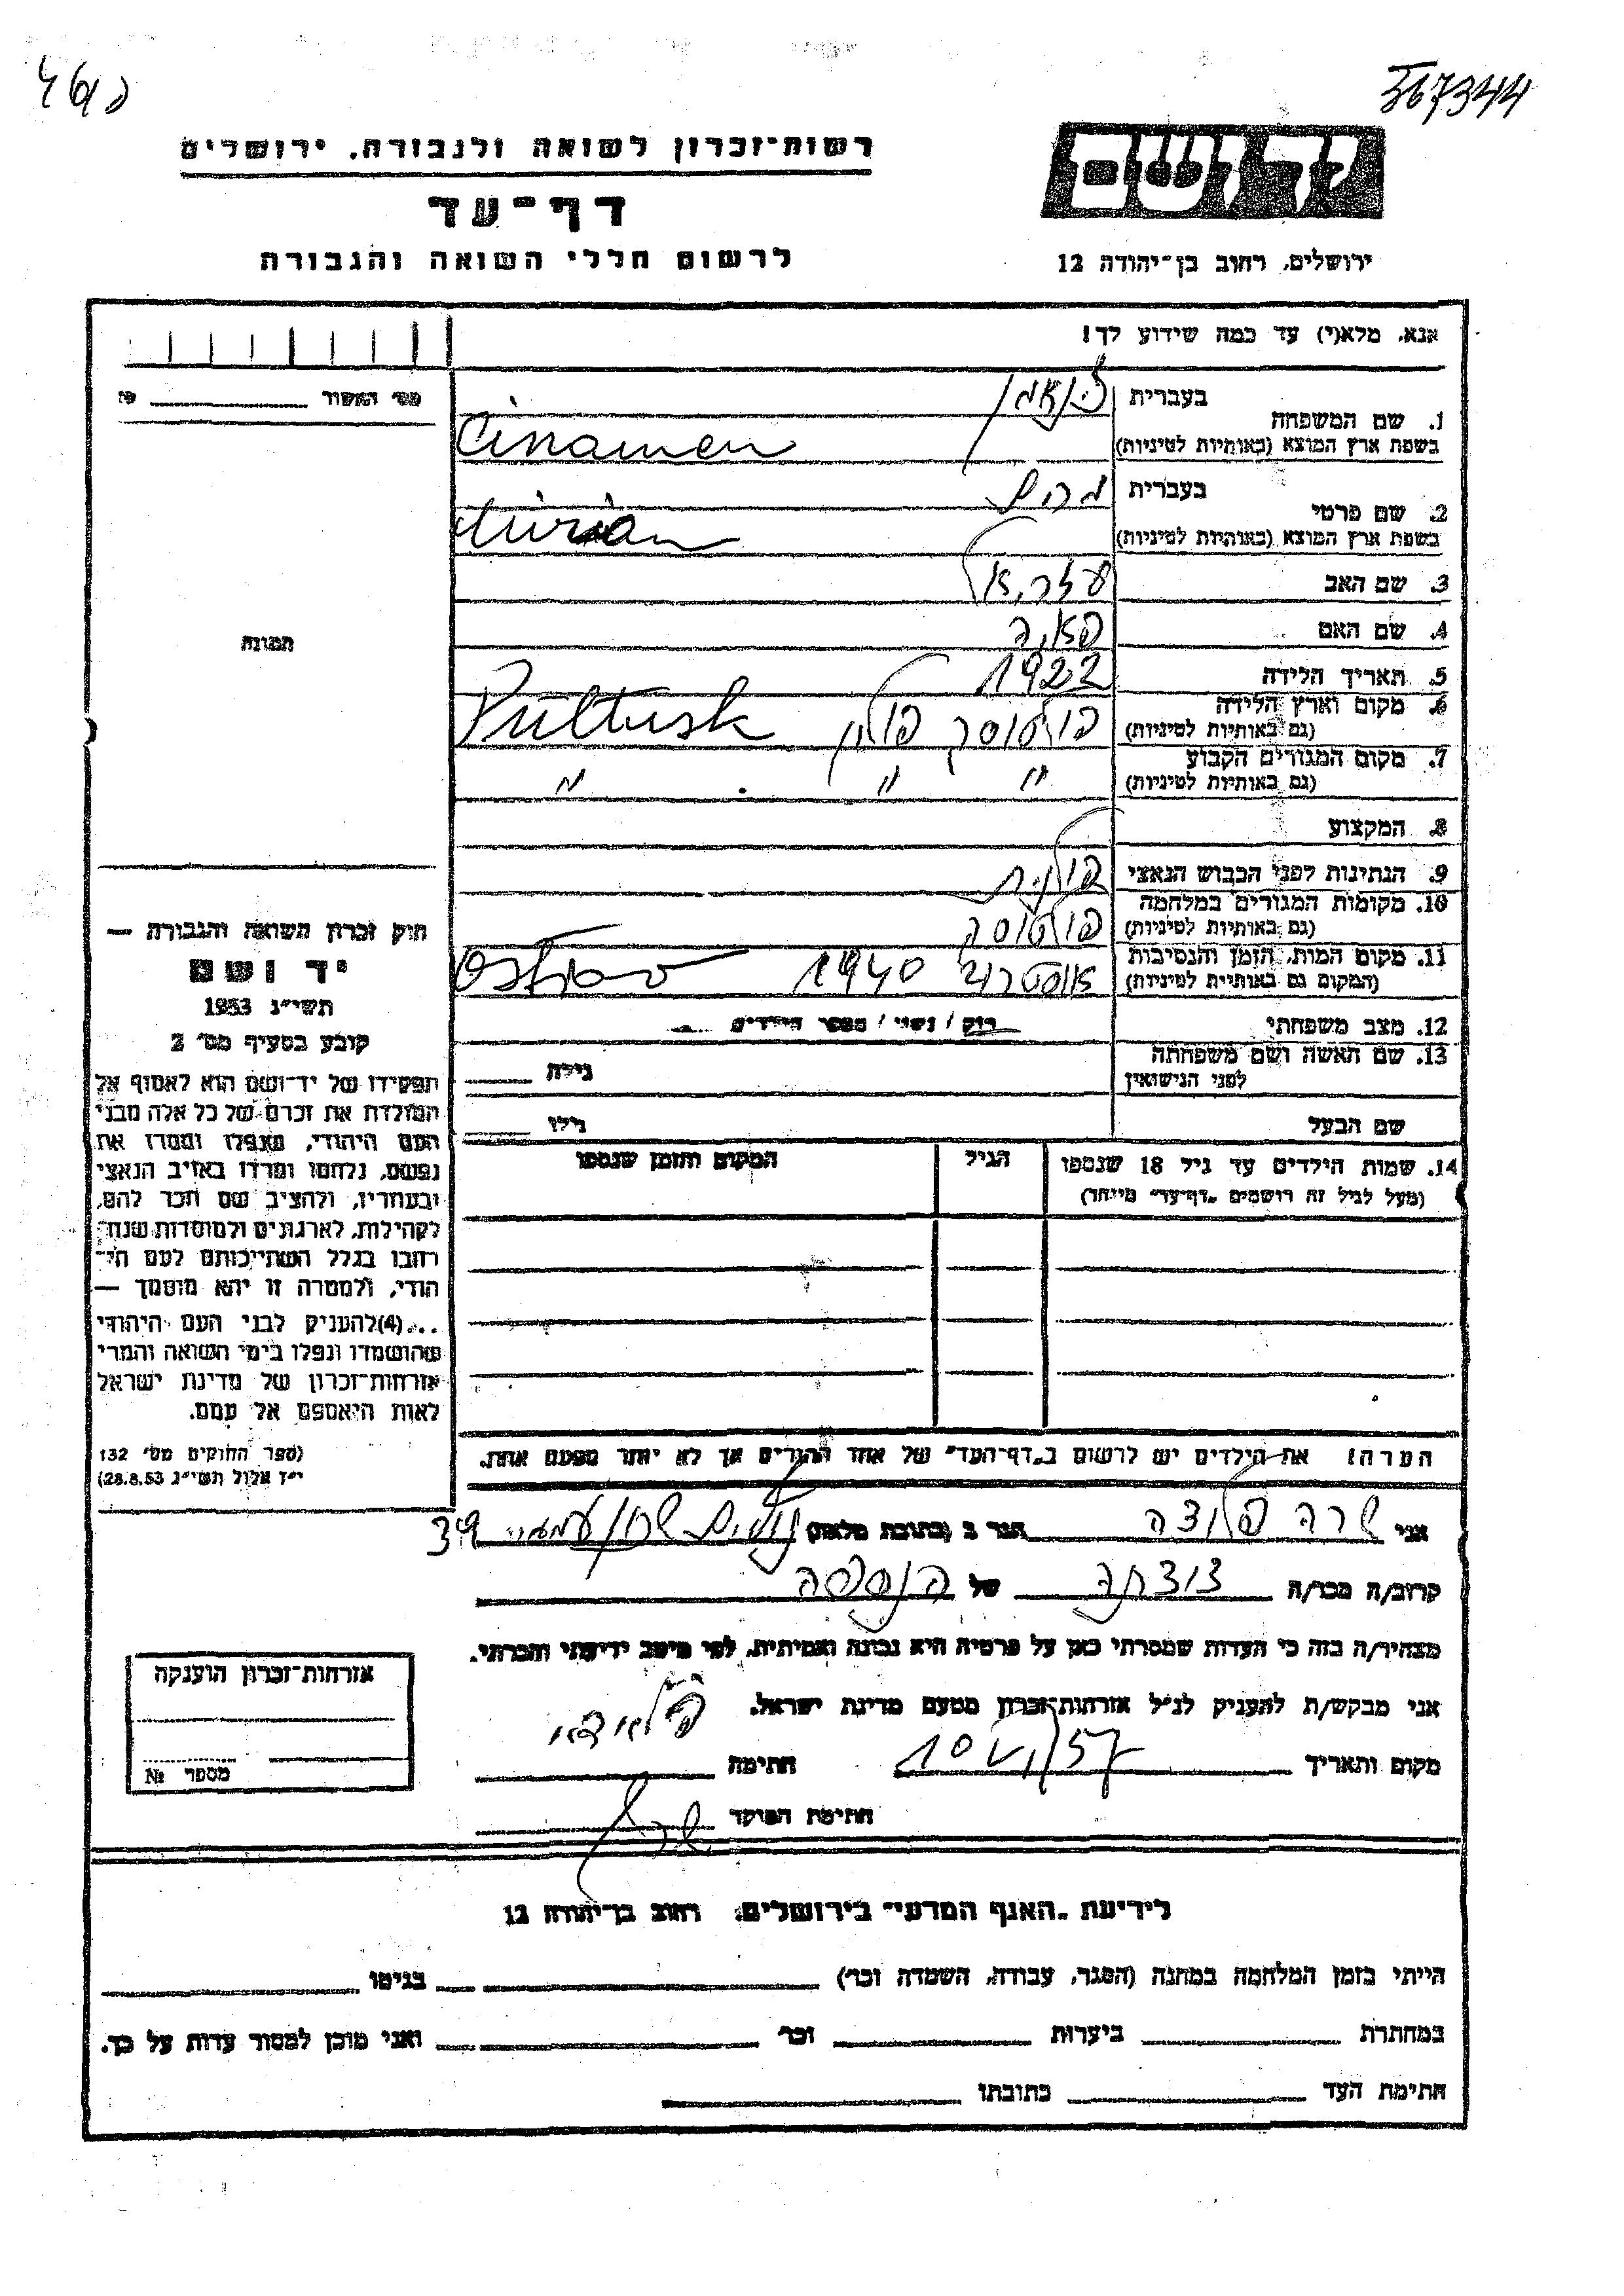 367344
רשות-זכרון לשואה ולגבורה, ירושלים
דף-עד
לרשום חללי השואה והגבורה
יד ושם
ירושלים, רחוב בן-יהודה 12
אנא, מלא(י) עד כמה שידוע לך!
מס' האשור
1. שם המשפחה
בעברית צינאמן
בשפת ארץ המוצא (באותיות לטיניות) Cinamen
2. שם פרטי
בעברית מרים
בשפת ארץ המוצא (באותיות לטיניות) Mirian
3. שם האב
4. שם האם
5. תאריך הלידה 1922
6. מקום וארץ הלידה
(גם באותיות לטיניות) פולטוסק פולין Pultusk
7. מקום המגורים הקבוע
(גם באותיות לטיניות) " " "
8. המקצוע
9. הנתינות לפני הכבוש הנאצי פולנית
10. מקומות המגורים במלחמה
(גם באותיות לטיניות) פולטוסק
11. מקום המות, הזמן והנסיבות
(המקום גם באותיות לטיניות) 1940
12. מצב משפחתי רוק / נשוי / מספר הילדים
13. שם האשה ושם משפחתה
לפני הנישואין
גילה
שם הבעל
גילו
14. שמות הילדים עד גיל 18 שנספו
(מעל לגיל זה רושמים "דף-עד" מיוחד)
הגיל
המקום והזמן שנספו
הערה! את הילדים יש לרשום ב"דף-העד" של אחד ההורים אך לא יותר מפעם אחת.
תמונה
חוק זכרון השואה והגבורה —
יד ושם
תשי"ג 1953
קובע בסעיף מס' 2
תפקידו של יד-ושם הוא לאסוף אל
המולדת את זכרם של כל אלה מבני
העם היהודי, שנפלו ומסרו את
נפשם, נלחמו ומרדו באויב הנאצי
ובעוזריו, ולהציב שם וזכר להם,
לקהילות, לארגונים ולמוסדות שנח-
רבו בגלל השתייכותם לעם הי-
הודי, ולמטרה זו יהא מוסמך —
...(4) להעניק לבני העם היהודי
שהושמדו ונפלו בימי השואה והמרי
אזרחות-זכרון של מדינת ישראל
לאות היאספם אל עמם.
(ספר החוקים מס' 132
י"ז אלול תשי"ג 28.8.53)
אני שרה הגר ב (כתובת מלאה) 39
קרוב/ה מכר/ה של הנספה
מצהיר/ה בזה כי העדות שמסרתי כאן על פרטיה היא נכונה ואמיתית, לפי מיטב ידיעתי והכרתי.
אני מבקש/ת להעניק לנ"ל אזרחות-זכרון מטעם מדינת ישראל.
מקום ותאריך חתימה
חתימת הפוקד
אזרחות-זכרון הוענקה
מספר №
לידיעת "האגף המדעי" בירושלים, רחוב בן-יהודה 12
הייתי בזמן המלחמה במחנה (הסגר, עבודה, השמדה וכו') בגיטו
במחתרת ביערות וכו' ואני מוכן למסור עדות על כך.
חתימת העד כתובתו